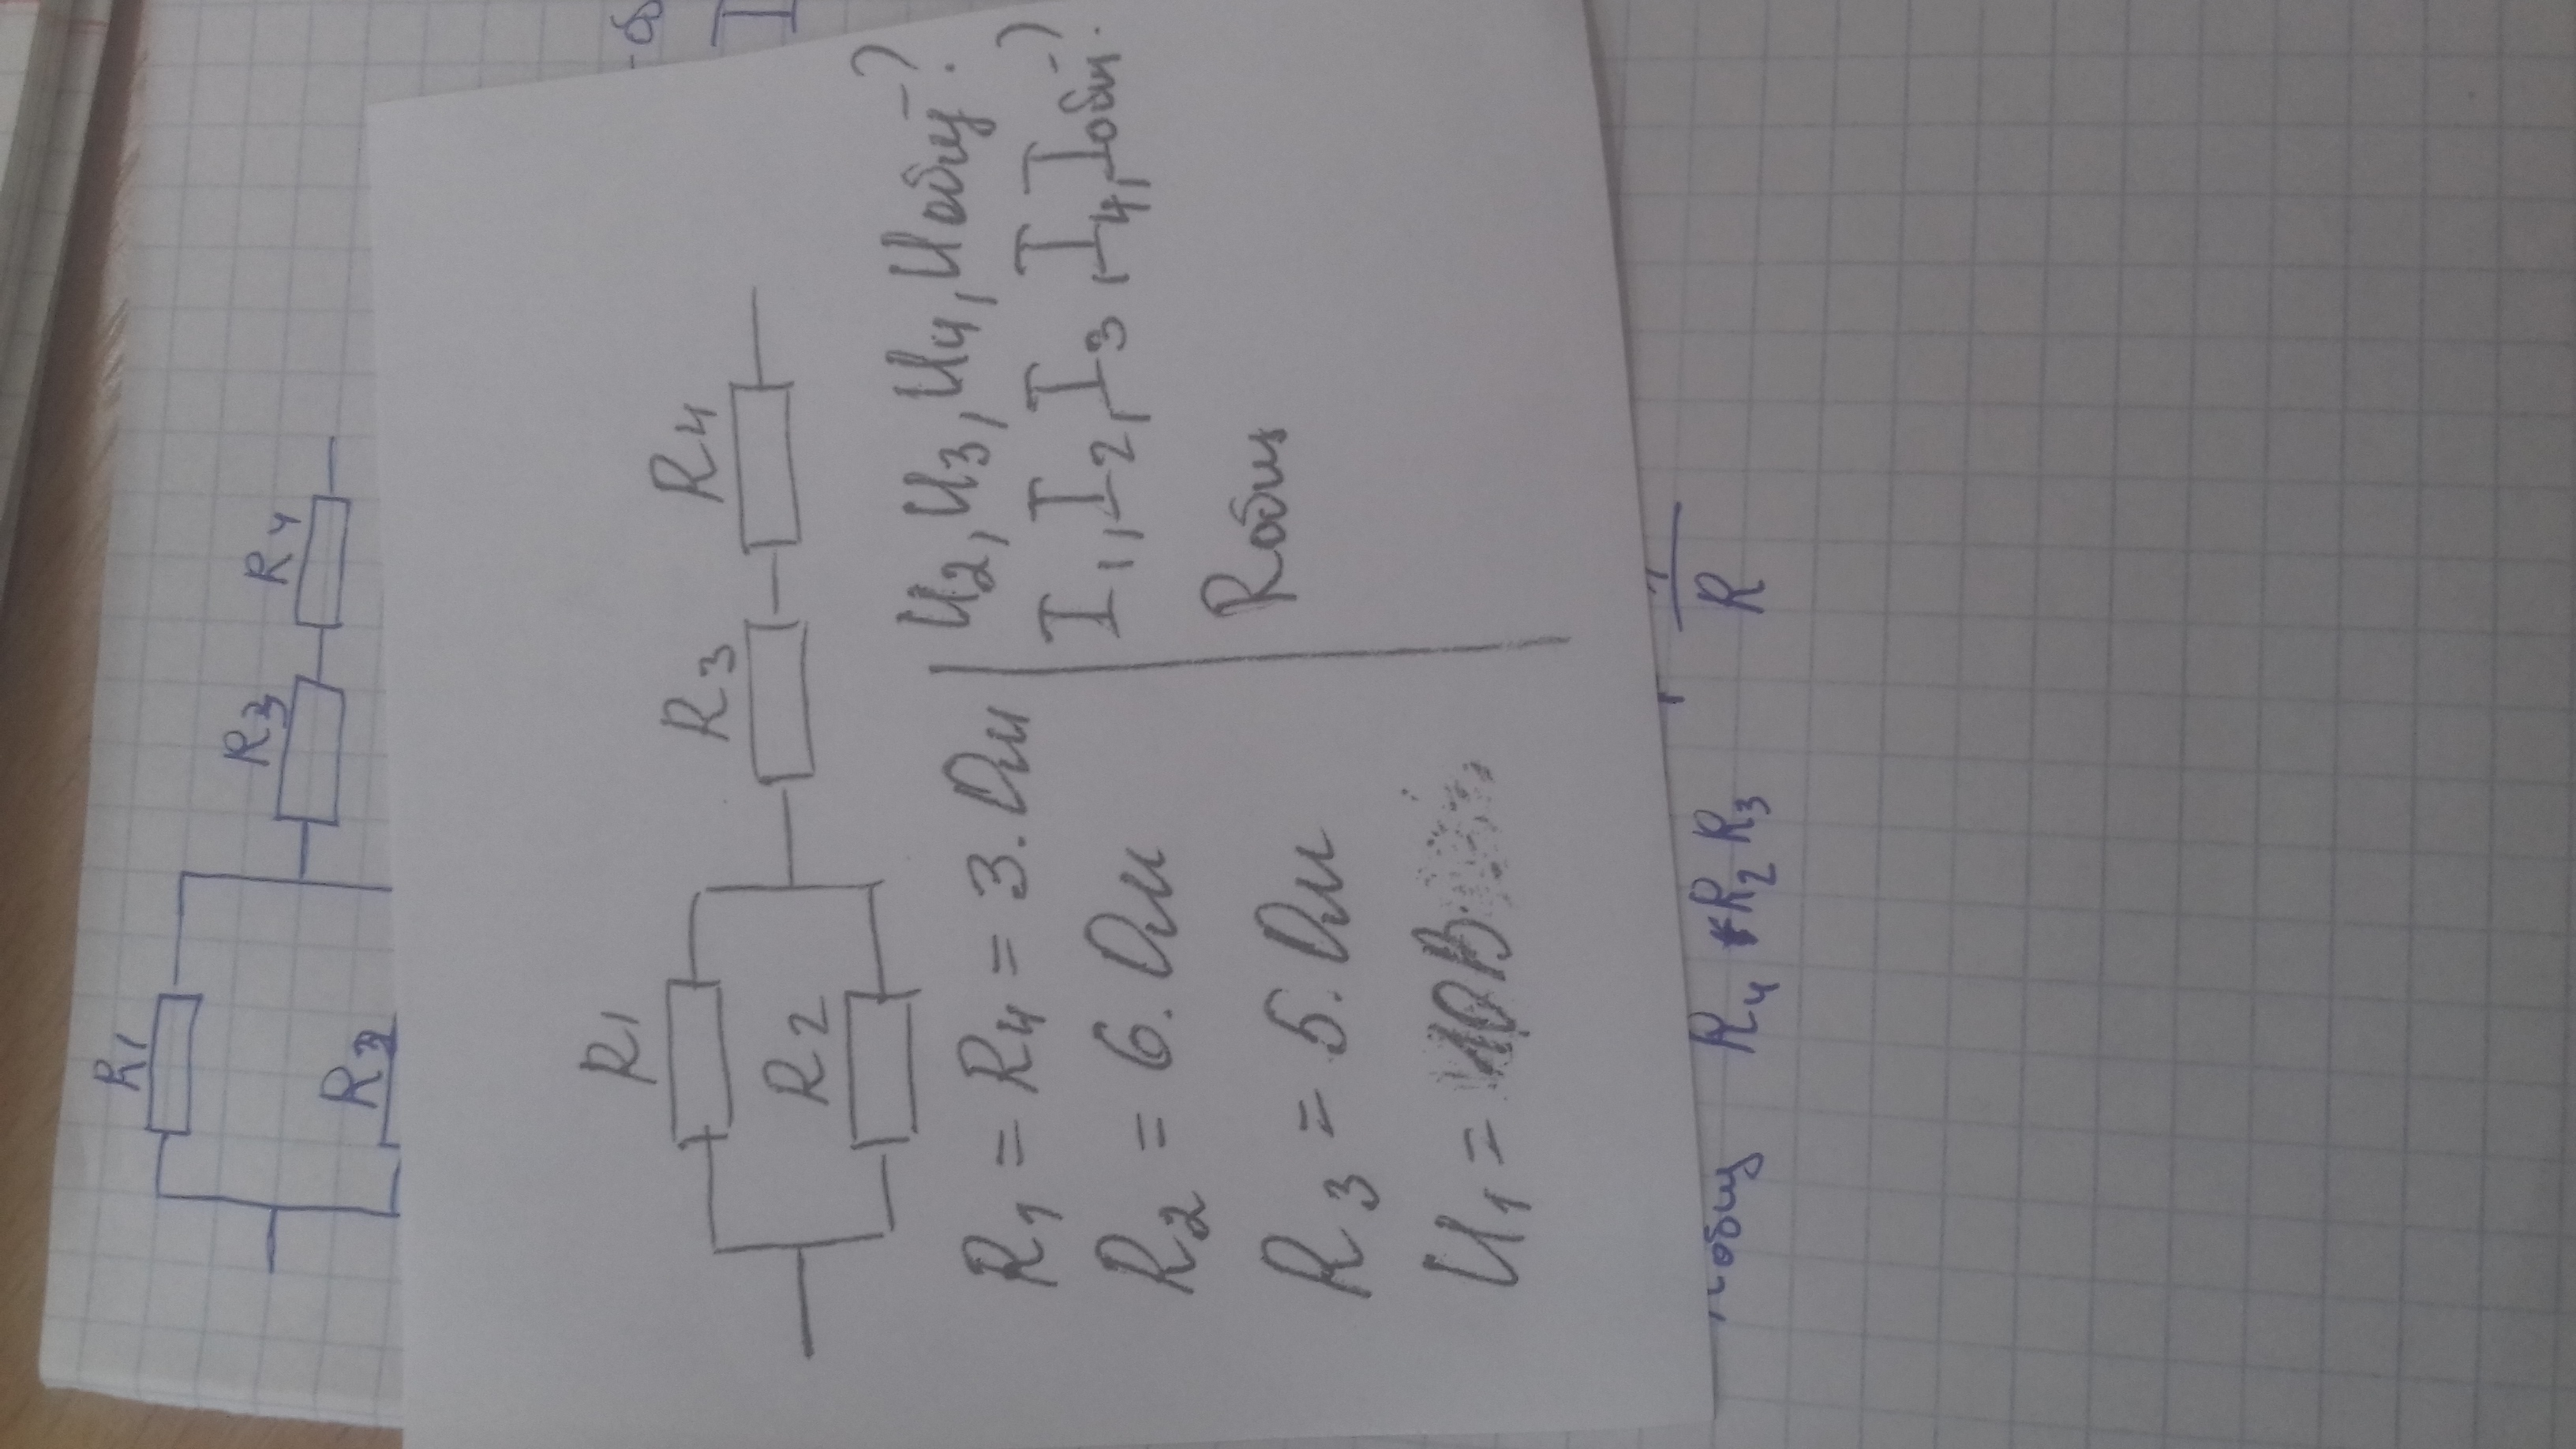 R1 R2 R3 R4
R1 = R4 = 3. Ом
R2 = 6. Ом
R3 = 5. Ом
U1 = 10В.
U2, U3, U4, Uобщ - ?
I1, I2, I3, I4, Iобщ. - ?
Rобщ
R1 R3 R4
R4 R2 R3
R